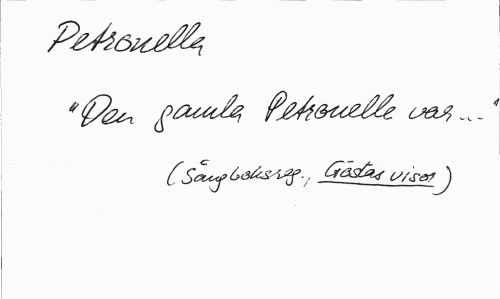 Petronella
"Den gamla Petronella var..."
(Sångboksreg., Göstas visor)